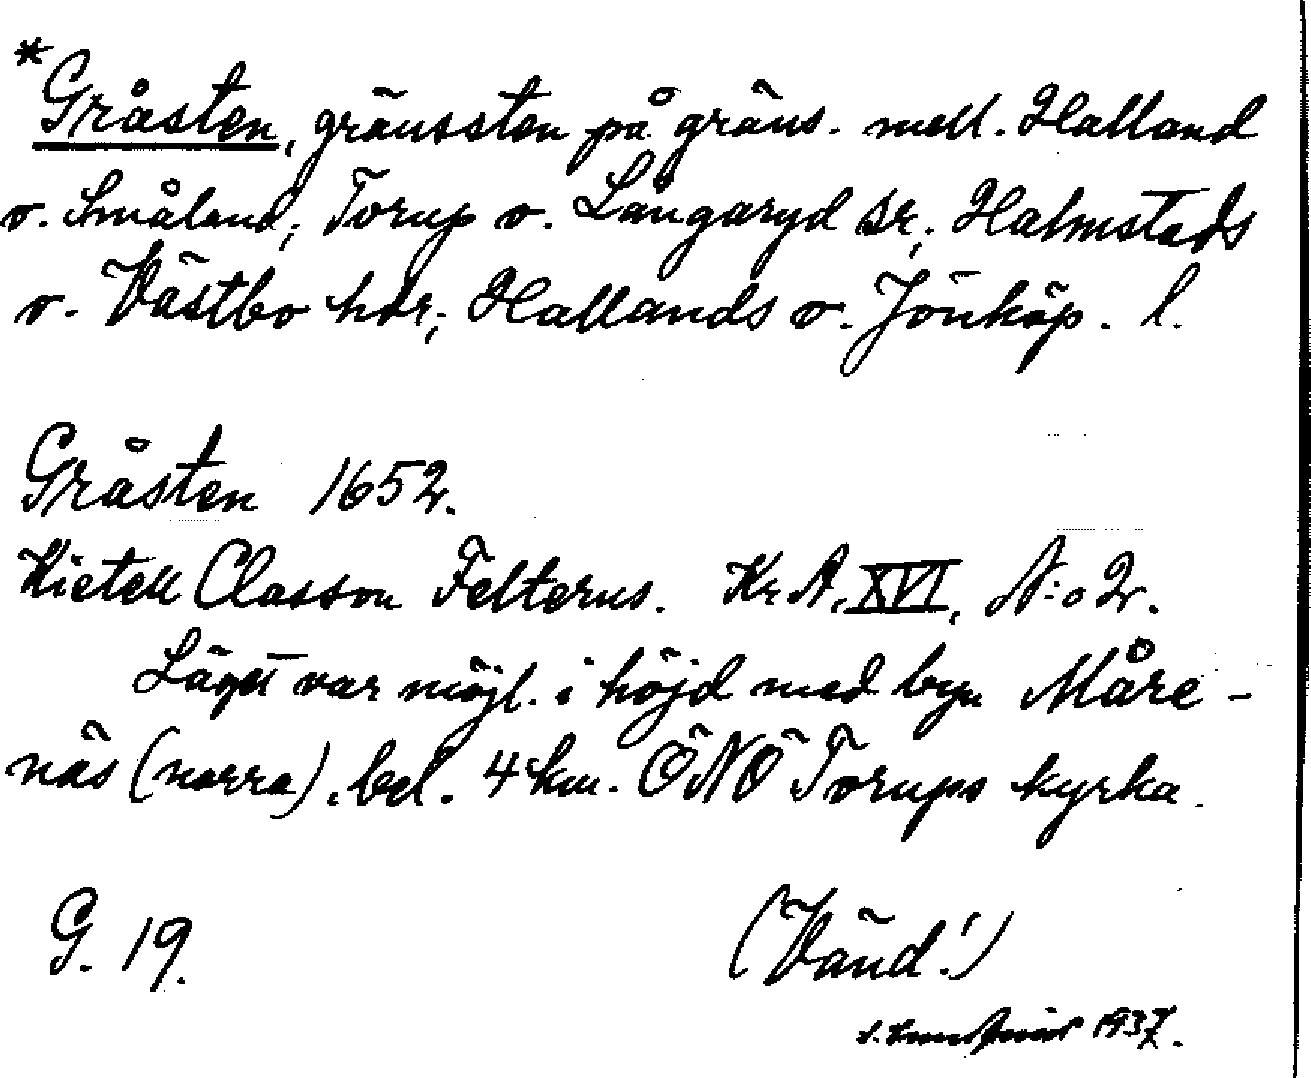 *Gråsten, gränssten på gräns. mell. Halland
o. Småland; Torup o. Långaryd sr; Halmstads
o. Västbo hdr; Hallands o. Jönköp. l.
Gråsten 1652.
Kietell Classon Felterus. Kr.A. XVI, N:o 2.
Läget var möjl. i höjd med byn Måre-
nås (norra), bel. 4 km. ÖNÖ Torups kyrka.
G. 19.
(Vänd!)
1937.